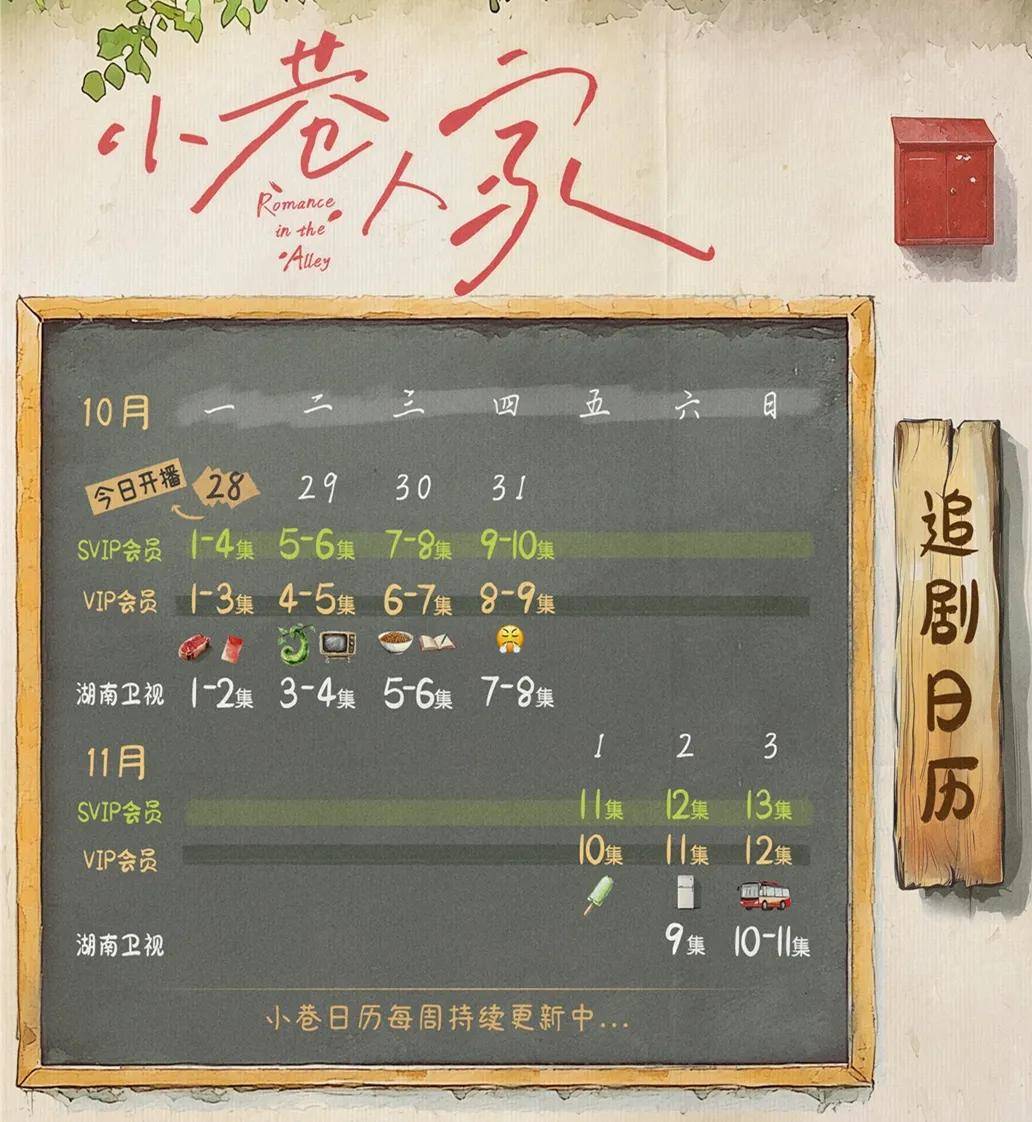 小巷人家
Romance
in the
Alley
10月 一 二 三 四 五 六 日
今日开播 28 29 30 31
SVIP会员 1-4集 5-6集 7-8集 9-10集
VIP会员 1-3集 4-5集 6-7集 8-9集
湖南卫视 1-2集 3-4集 5-6集 7-8集
11月 1 2 3
SVIP会员 11集 12集 13集
VIP会员 10集 11集 12集
湖南卫视 9集 10-11集
小巷日历每周持续更新中...
追剧日历